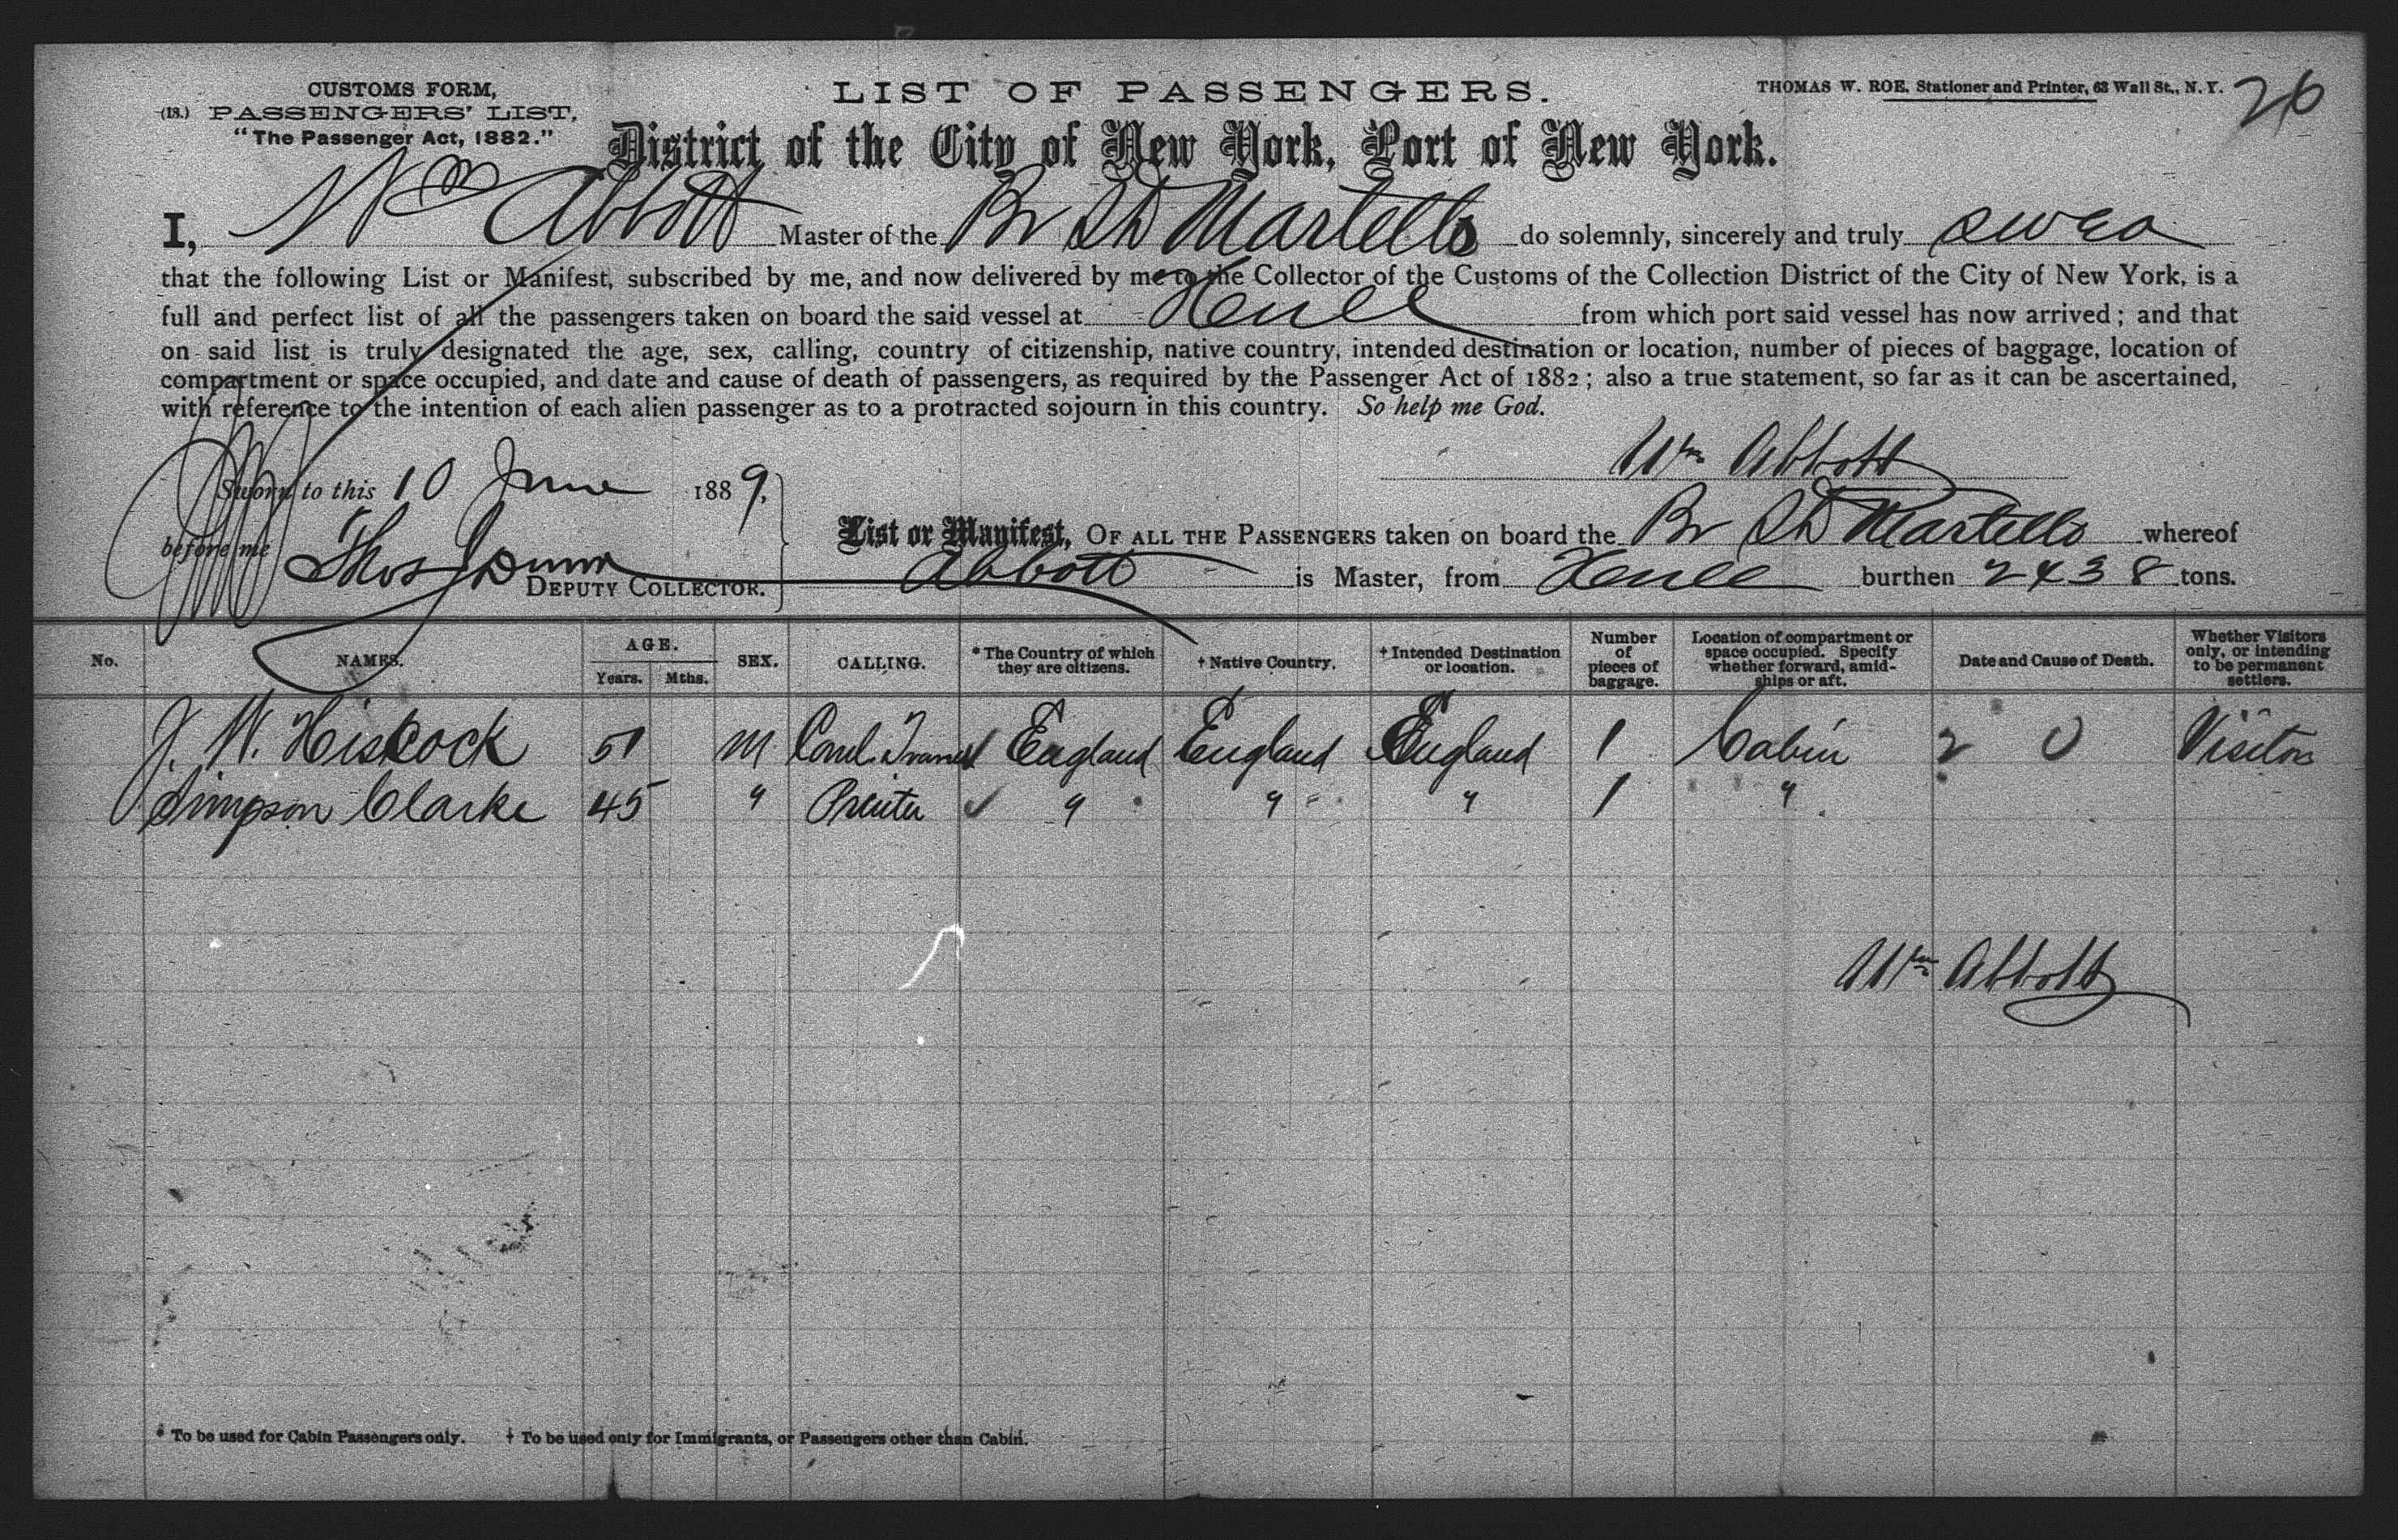 CUSTOMS FORM,
(18.) PASSENGERS' LIST,
"The Passenger Act, 1882."
LIST OF PASSENGERS.
THOMAS W. ROE, Stationer and Printer, 63 Wall St., N. Y.
26
District of the City of New York, Port of New York.
I, Wm Abbott Master of the Br SS Martello do solemnly, sincerely and truly swear
that the following List or Manifest, subscribed by me, and now delivered by me to the Collector of the Customs of the Collection District of the City of New York, is a
full and perfect list of all the passengers taken on board the said vessel at Hull from which port said vessel has now arrived; and that
on said list is truly designated the age, sex, calling, country of citizenship, native country, intended destination or location, number of pieces of baggage, location of
compartment or space occupied, and date and cause of death of passengers, as required by the Passenger Act of 1882; also a true statement, so far as it can be ascertained,
with reference to the intention of each alien passenger as to a protracted sojourn in this country. So help me God.
Wm Abbott
Sworn to this 10 June 1889,
before me Thos J Dunn
DEPUTY COLLECTOR.
List or Manifest, OF ALL THE PASSENGERS taken on board the Br SS Martello whereof
Abbott is Master, from Hull burthen 2438 tons.
No. NAMES. AGE. Years. Mths. SEX. CALLING. * The Country of which they are citizens. † Native Country. † Intended Destination or location. Number of pieces of baggage. Location of compartment or space occupied. Specify whether forward, amidships or aft. Date and Cause of Death. Whether Visitors only, or intending to be permanent settlers.
J. W. Hiscock 51 M England England England 1 Cabin 2 0 Visitors
Simpson Clarke 45 " Printer " " " 1 "
Wm Abbott
* To be used for Cabin Passengers only. † To be used only for Immigrants, or Passengers other than Cabin.